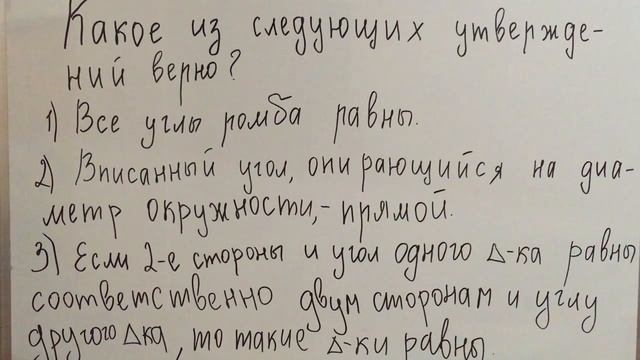 Какое из следующих утвержде-
ний верно?
1) Все углы ромба равны.
2) Вписанный угол, опирающийся на диа-
метр окружности,- прямой.
3) Если 2-е стороны и угол одного Δ-ка равны
соответственно двум сторонам и углу
другого Δка, то такие Δ-ки равны.